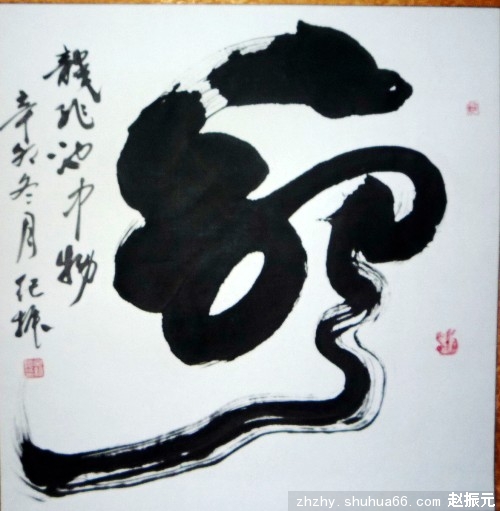 龍
龍非池中物
辛卯冬月
zhzhy.shuhua66.com 赵振元